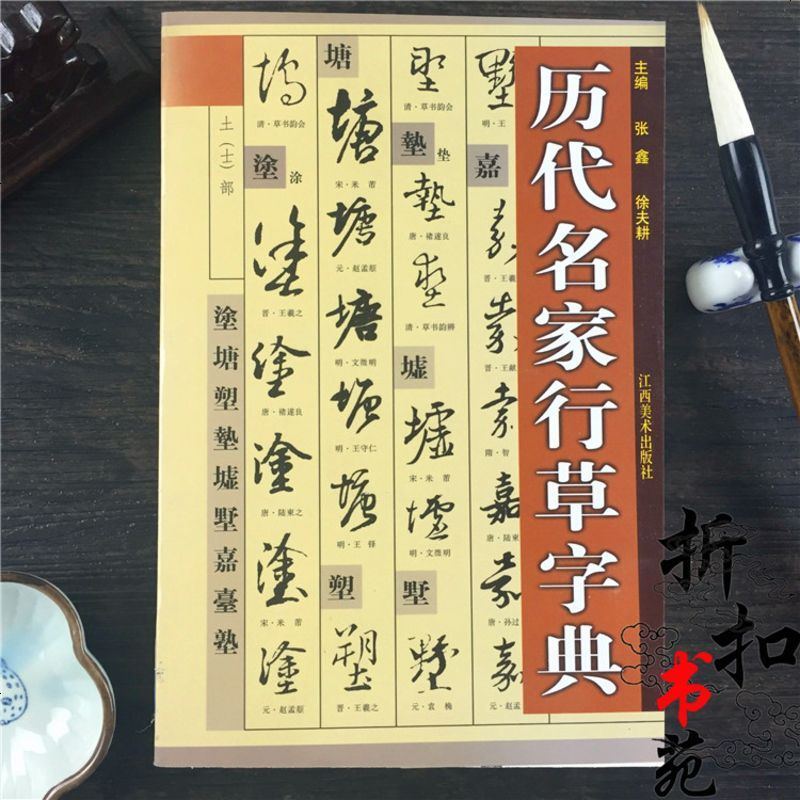 历代名家行草字典
主编 张鑫 徐夫耕
江西美术出版社
土（士）部
塗塘塑墊墟墅嘉臺塾
塢
清·草书韵会
塗 涂
塗
晋·王羲之
塗
唐·褚遂良
塗
唐·陆柬之
塗
宋·米芾
塗
元·赵孟頫
塘
塘
宋·米芾
塘
元·赵孟頫
塘
明·文徵明
塘
明·王守仁
塘
明·王铎
塑
塑
晋·王羲之
清·草书韵会
墊 垫
墊
唐·褚遂良
清·草书韵辨
墟
墟
宋·米芾
墟
明·文徵明
墅
墅
元·袁桷
墅
明·王
嘉
嘉
晋·王羲
嘉
晋·王献
嘉
隋·智
嘉
唐·陆柬
嘉
唐·孙过
嘉
元·赵孟
折扣书苑